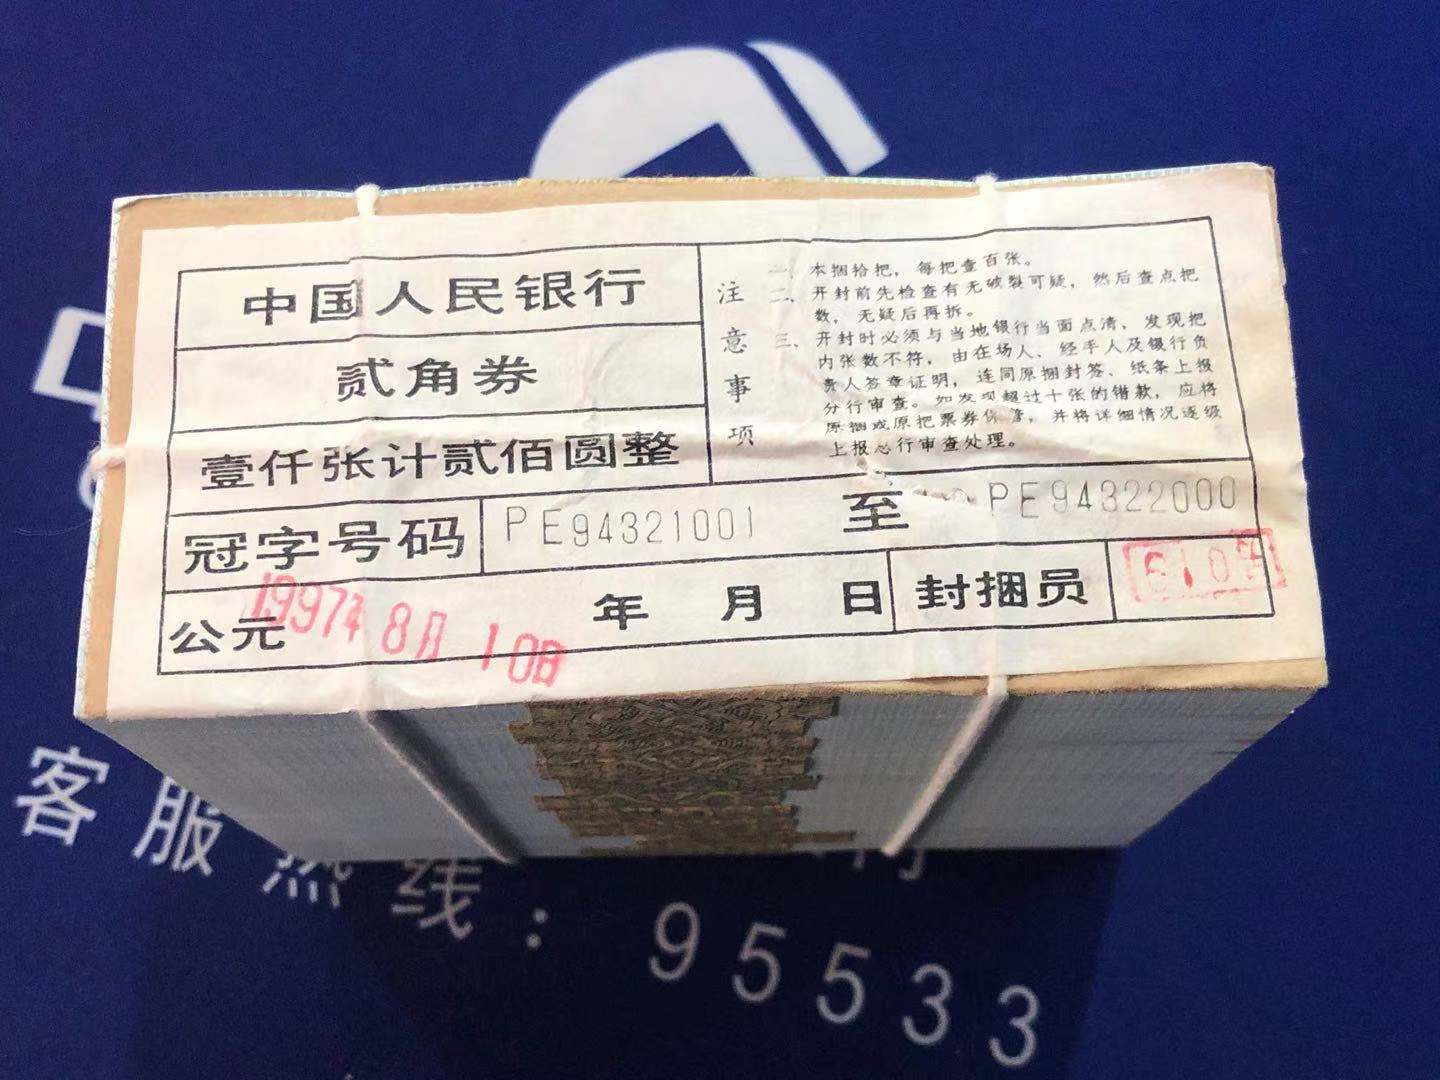 中国人民银行
贰角券
壹仟张计贰佰圆整
注意事项
一、本捆拾把，每把壹百张。
二、开封前先检查有无破裂可疑，然后查点把
数，无疑后再拆。
三、开封时必须与当地银行当面点清，发现把
内张数不符，由在场人、经手人及银行负
责人签章证明，连同原捆封签、纸条上报
分行审查。如发现超过十张的错款，应将
原捆或原把票券保管，并将详细情况逐级
上报总行审查处理。
冠字号码 PE94321001 至 PE94322000
公元 年 月 日 封捆员
1997年 8月 10日
客服热线：95533